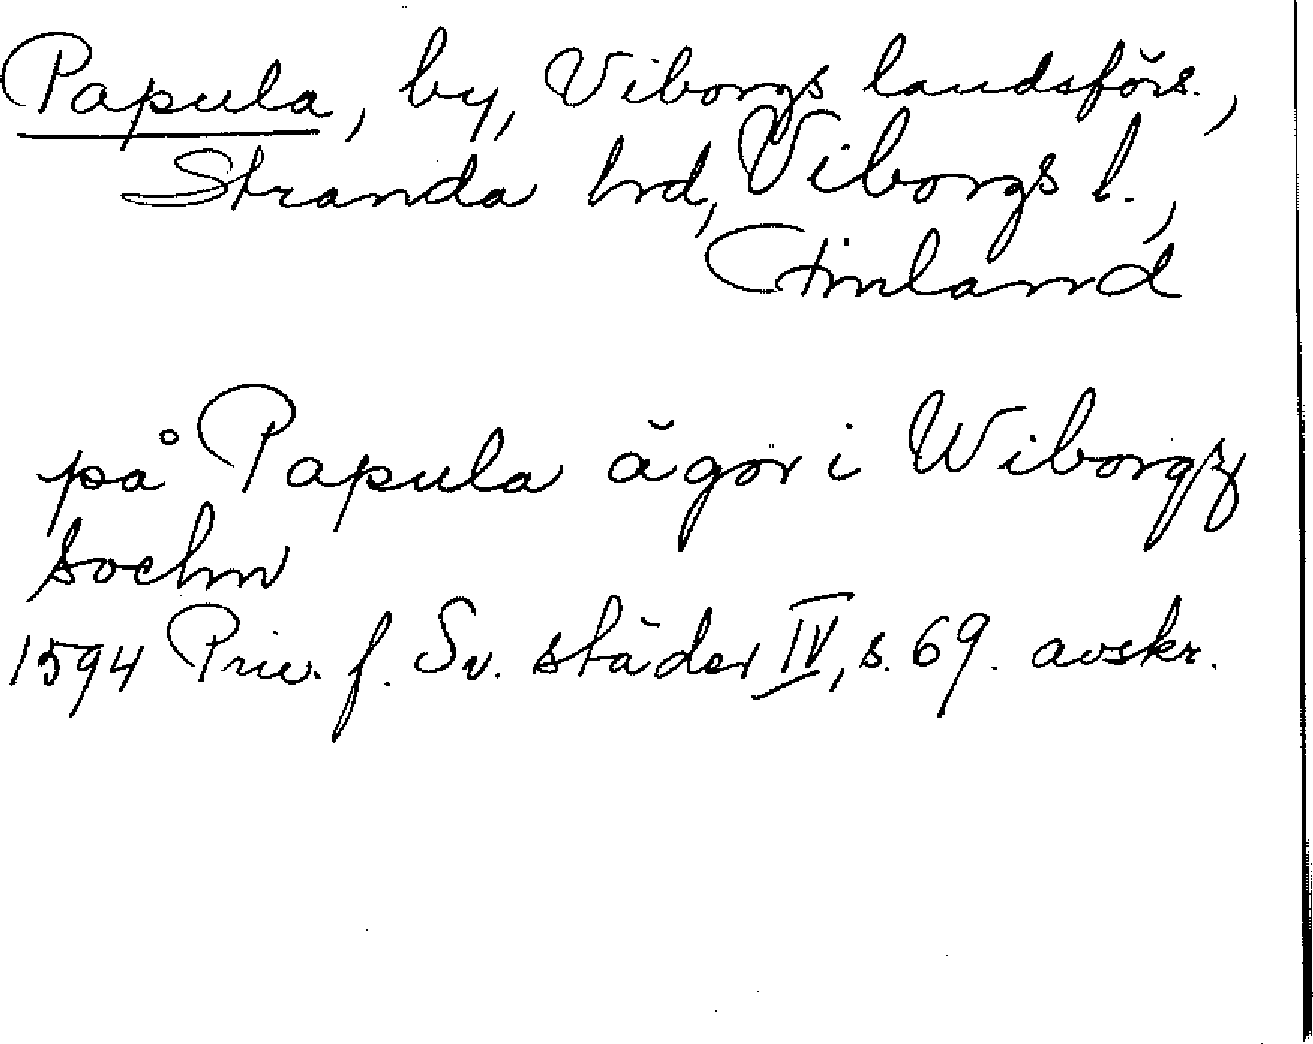 Papula, by, Viborgs landsförs.,
Stranda hrd, Viborgs l.,
Finland
på Papula ägor i Wiborgz
sochn
1594 Priv. f. Sv. städer IV, s. 69. avskr.